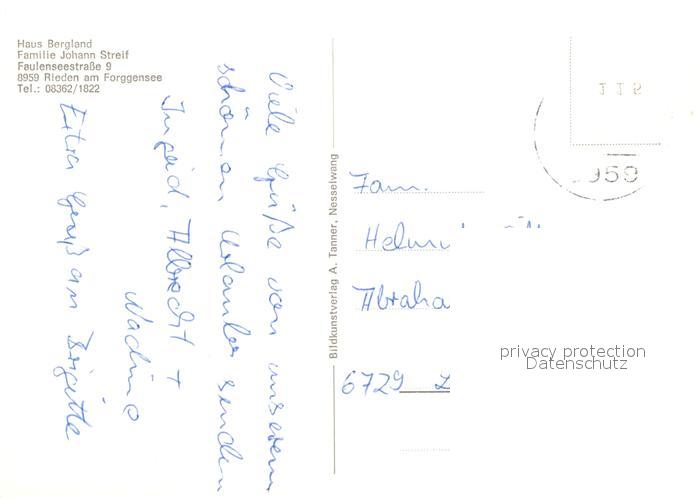 Haus Bergland
Familie Johann Streif
Faulenseestraße 9
8959 Rieden am Forggensee
Tel.: 08362/1822
Viele Grüße von unserem
schönen Urlaub senden
Ingrid, Albrecht +
Nadine
Extra Gruß an Brigitte
Bildkunstverlag A. Tanner, Nesselwang
Fam.
Helmu
Abraha
6729
959
privacy protection
Datenschutz